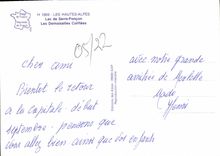 H 1869 - LES HAUTES-ALPES
Lac de Serre-Ponçon
Les Demoiselles Coiffées
05/22
Chers amis
Bientôt le retour
à la capitale - début
septembre - pensons que
vous allez bien ainsi que les enfants
avec notre grande
amitié